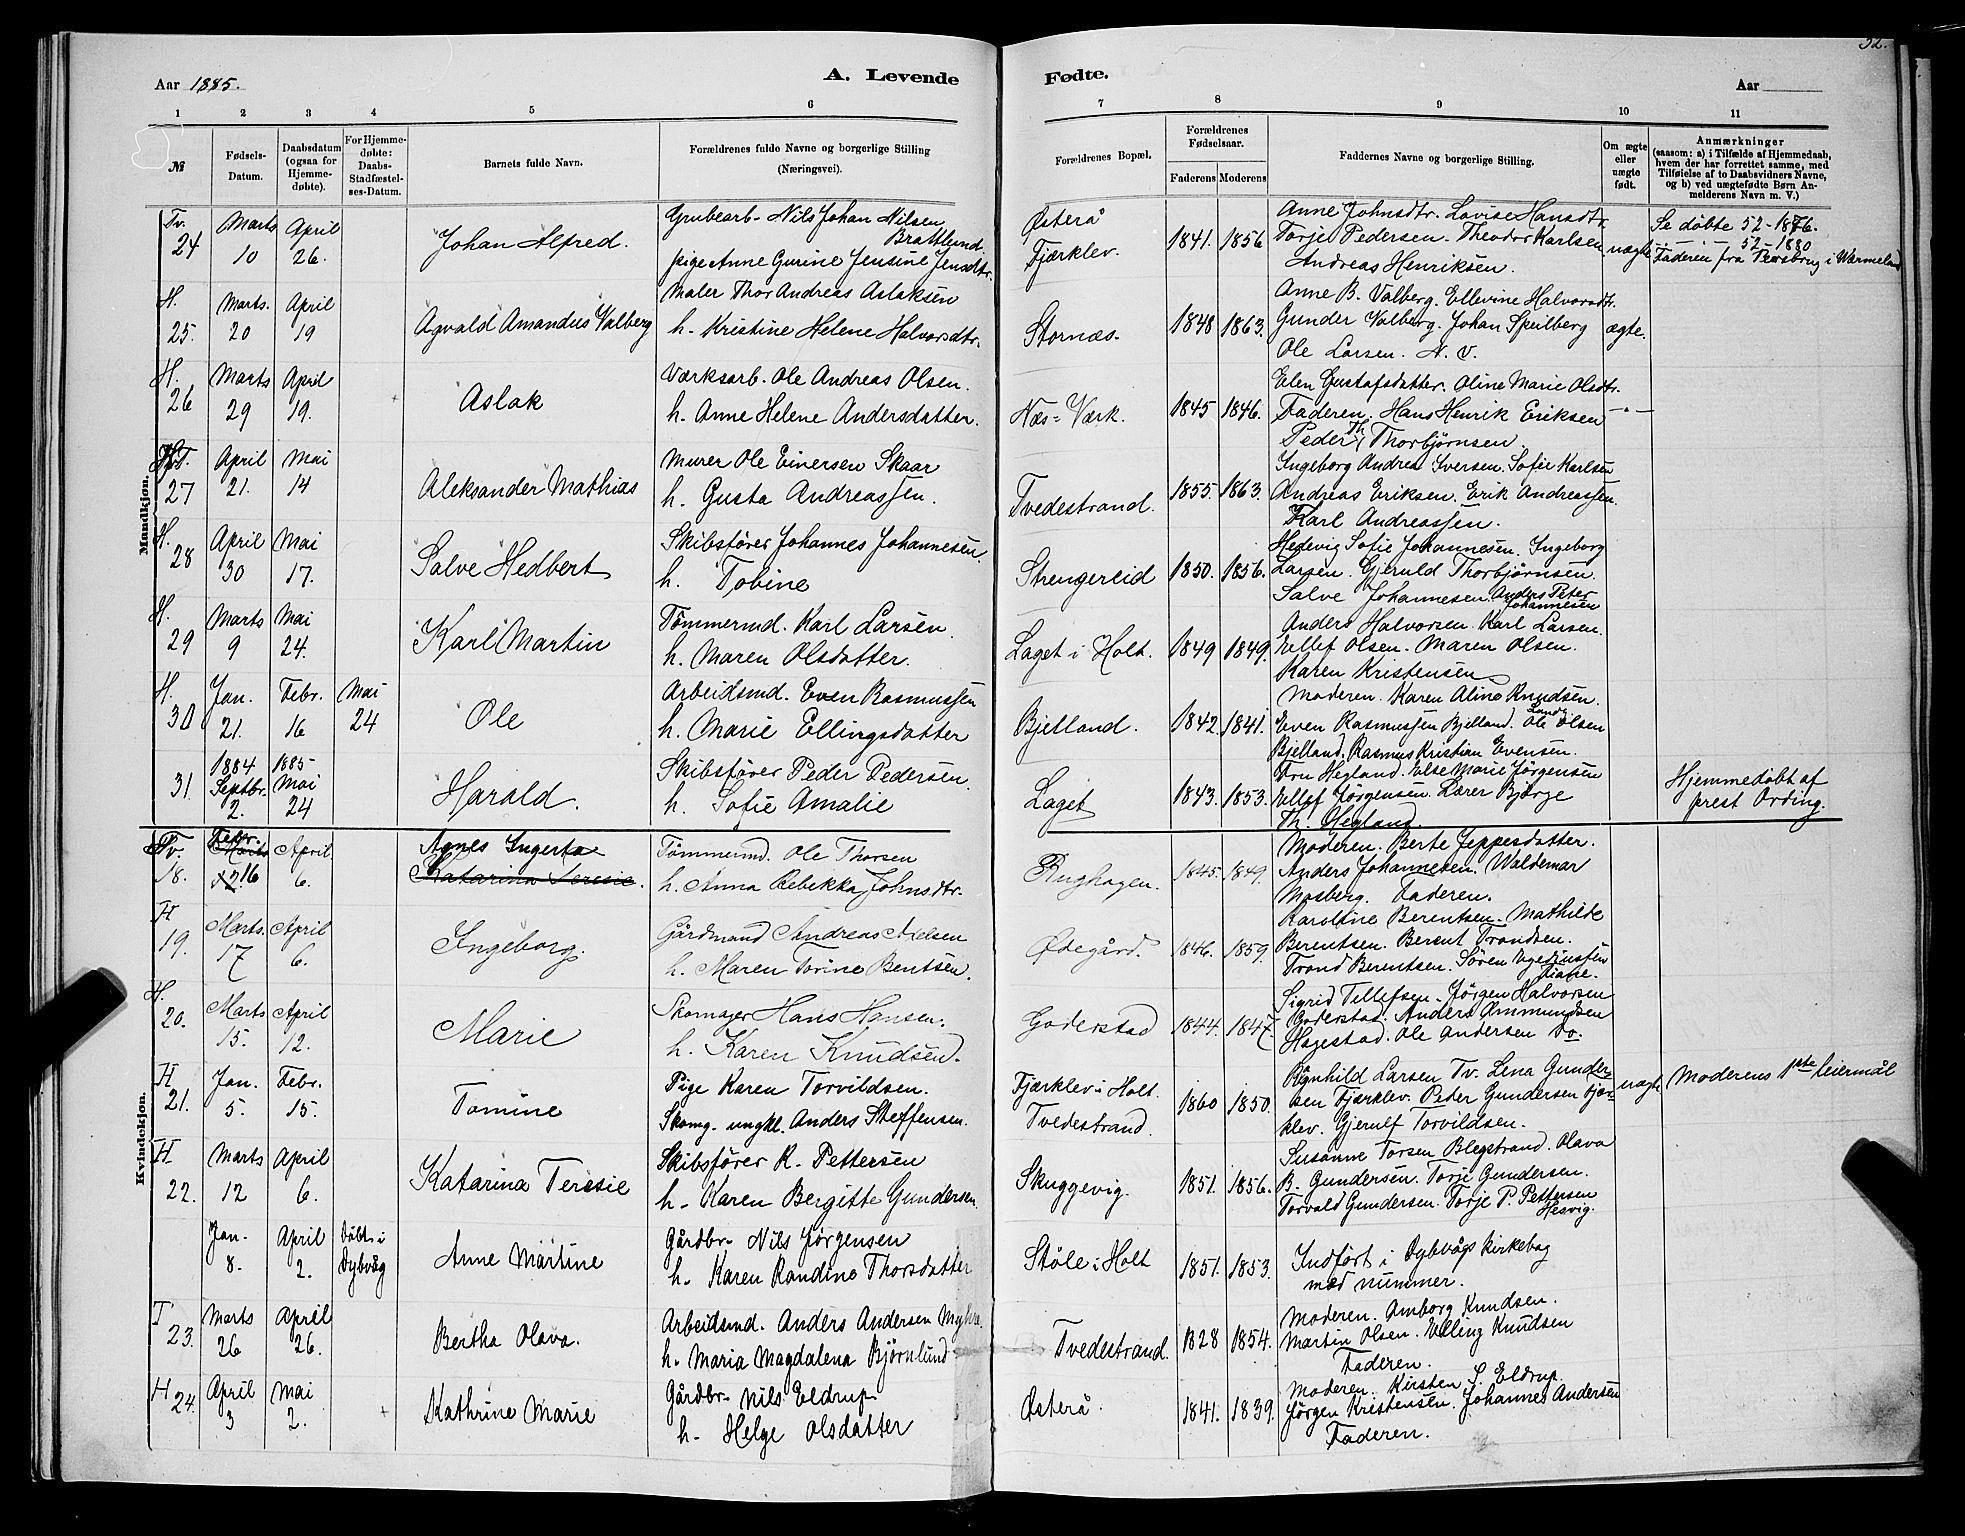 52.
Aar 1885.
A. Levende
Fødte.
Aar
1 2 3 4 5 6 7 8 9 10 11
№
Fødsels-Datum.
Daabsdatum (ogsaa for Hjemmedøbte).
For Hjemmedøbte: Daabs-Stadfæstelses-Datum.
Barnets fulde Navn.
Forældrenes fulde Navne og borgerlige Stilling (Næringsvei).
Forældrenes Bopæl.
Forældrenes Fødselsaar.
Faderens Moderens
Faddernes Navne og borgerlige Stilling.
Om ægte eller uægte født.
Anmærkninger (saasom: a) i Tilfælde af Hjemmedaab, hvem der har forrettet samme, med Tilføielse af to Daabsvidners Navne, og b) ved uægtefødte Børn Anmelderens Navn m. V.)
Mandkjøn.
Tv. 24 Marts 10 April 26. Johan Alfred.
Grubearb- Nils Johan Nilsen Brattlund
pige Anne Gurine Jensine Jensdtr.
Østerå Fjærklev. 1841. 1856
Anne Johnsdtr. Lovise Hansdtr.
Torje Pedersen. Theodor Karlsen
Andreas Henriksen.
uægte
Se døbte 52-1876.
52-1880
Faderen fra Persbrug i Wermeland
H. 25. Marts. 20 April 19 Agvald Amandus Valberg
Maler Thor Andreas Aslaksen
h. Kristine Helene Halvorsdtr.
Stornæs. 1848 1863.
Anne B. Valberg. Ellevine Halvorsdtr.
Gunder Valberg. Johan Speilberg
Ole Larsen. N. V.
ægte.
H. 26 Marts 29 April 19. Aslak
Værksarb. Ole Andreas Olsen.
h. Anne Helene Andersdatter.
Næs-Værk. 1845 1846.
Elen Gustafsdatter. Oline Marie Olsdtr.
Faderen. Hans Henrik Eriksen
Peder Th. Thorbjørnsen.
-"-
T. 27 April 21. Mai 14 Aleksander Mathias
Murer Ole Einersen Skaar
h. Gusta Andreassen.
Tvedestrand. 1855. 1863.
Ingeborg Andrea Iversen. Sofie Karlsen
Andreas Eriksen. Erik Andreassen.
Karl Andreassen.
H. 28 April 30 Mai 17. Salve Hedbert
Skibsfører Johannes Johannesen.
h. Tobine
Strengereid 1850. 1856.
Hedevig Sofie Johannesen. Ingeborg
Larsen. Gjeruld Thorbjørnsen.
Salve Johannesen. Anders Peter Johannesen
H. 29 Marts 9 Mai 24. Karl Martin
Tømmermd. Karl Larsen.
h. Maren Olsdatter.
Laget i Holt. 1849 1849.
Anders Halvorsen. Karl Larsen.
Ellef Olsen. Maren Olsen.
Karen Kristensen
H. 30 Jan. 21. Febr. 16 Mai 24 Ole
Arbeidsmd. Even Rasmussen
h. Marie Ellingsdatter
Bjelland. 1842. 1841.
Moderen. Karen Aline Knudsen.
Even Rasmussen Bjelland. Ole Olsen
Bjelland. Rasmus Kristian Evensen.
31. 1884 Septbr. 2. 1885 Mai 24 Harald.
Skibsfører Peder Pedersen.
h. Sofie Amalie
Laget 1843. 1853.
Fru Hegland. Else Marie Jørgensen
Ellef Jørgensen. Lærer Bjørge
Th. Hegland.
Hjemmedøbt af prest Ording.
Kvindekjøn.
Tv. 18. Febr. 16 April 6. Agnes Ingerta
Katarina Teresie.
Tømmermd. Ole Thorsen
h. Anna Rebekka Johnsdtr.
Rughagen. 1845. 1849.
Moderen. Berte Jeppesdatter.
Anders Johannesen. Waldemar
Mosberg. Faderen.
H 19. Marts. 17 April 6. Ingeborg.
Gårdmand Andreas Nielsen
h. Maren Torine Bentsen.
Ødegård. 1846. 1859.
Karoline Berentsen. Mathilde
Berentsen. Berent Trondsen.
Trond Berentsen. Søren Egediussen
H. 20. Marts 15. April 12. Marie
Skomager Hans Hansen.
h. Karen Knudsen.
Goderstad 1844. 1847.
Sigrid Tellefsen. Jørgen Halvorsen
Goderstad. Anders Ammundsen
Hagestad. Ole Andersen Do.
H 21. Jan. 5. Febr. 15. Tomine
Pige Karen Torvildsen.
Skomg. ungkl. Anders Steffensen.
Fjærklev i Holt.
Tvedestrand. 1860 1850.
Rægnhild Larsen Tv. Lena Gunder-
sen Fjærklev. Peder Gundersen Fjær-
klev. Gjerulf Torvildsen.
uægte Moderens 1ste leiermål
H 22. Marts 12 April 6. Katarina Teresie
Skibsfører K. Pettersen
h. Karen Bergitte Gundersen.
Skuggevig. 1851. 1856.
Susanne Torsen Blegstrand. Olava
B. Gundersen. Torje Gundersen.
Torvald Gundersen. Torje P. Pettersen Hesvig.
Jan. 8. April 2. Døbt i Dybvåg Anne Martine
Gårdbr- Nils Jørgensen
h. Karen Randine Thorsdatter
Støle i Holt 1851. 1853.
Indført i Dybvågs kirkebog
med nummer.
T 23. Marts 26 April 26. Bertha Olava.
Arbeidsmd. Anders Andersen Myhre.
h. Maria Magdalena Bjørnlund
Tvedestrand. 1828 1854.
Moderen. Amborg Knudsen.
Martin Olsen. Elling Knudsen
Faderen.
H 24. April 3 Mai 2. Kathrine Marie
Gårdbr- Nils Eldrup
h. Helge Olsdatter
Østerå. 1841. 1839.
Moderen. Kirsten S. Eldrup.
Jørgen Kristensen. Johannes Andersen
Faderen.